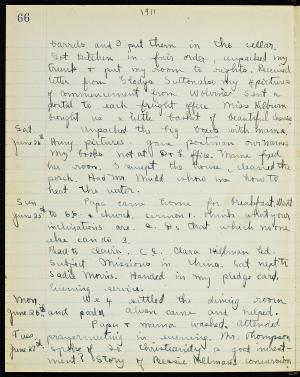 66
1911
barrels and I put them in the cellar.
Got kitchen in fair order, unpacked my
trunk & put my room to rights. Received
letter from Gladys
of commencement from Wolvin. Sent a
postal to each freight office. Miss Kilburn
brought us a little basket of beautiful
Sat. Unpacked the big boxes with mama
June 24th Hung pictures. gave postman our names
my books not at D & S office. Mama fixed
her room. I swept the house, cleaned the
porch. Had Mr. Mudd show me how to
heat the water.
Sun Papa came home for breakfast. Went
June 25th to S.S. & church. sermon 1. Think what your
inclinations are. 2. Do that which no one
else can do. 3.
Read to C.E. Clara Hillman led.
Subject Missions in China. Sat next to
Sadie Morris. Handed in my pledge card.
Evening service.
Mon. We 4 settled the dining room
June 26th and parlor. came and helped.
Papa & mama washed. attended
Tues. prayermeeting in evening. Mr. Thompson
June 27th spoke of Is Christianity a good invest-
ment? Story of Bessie Hillman's conversion